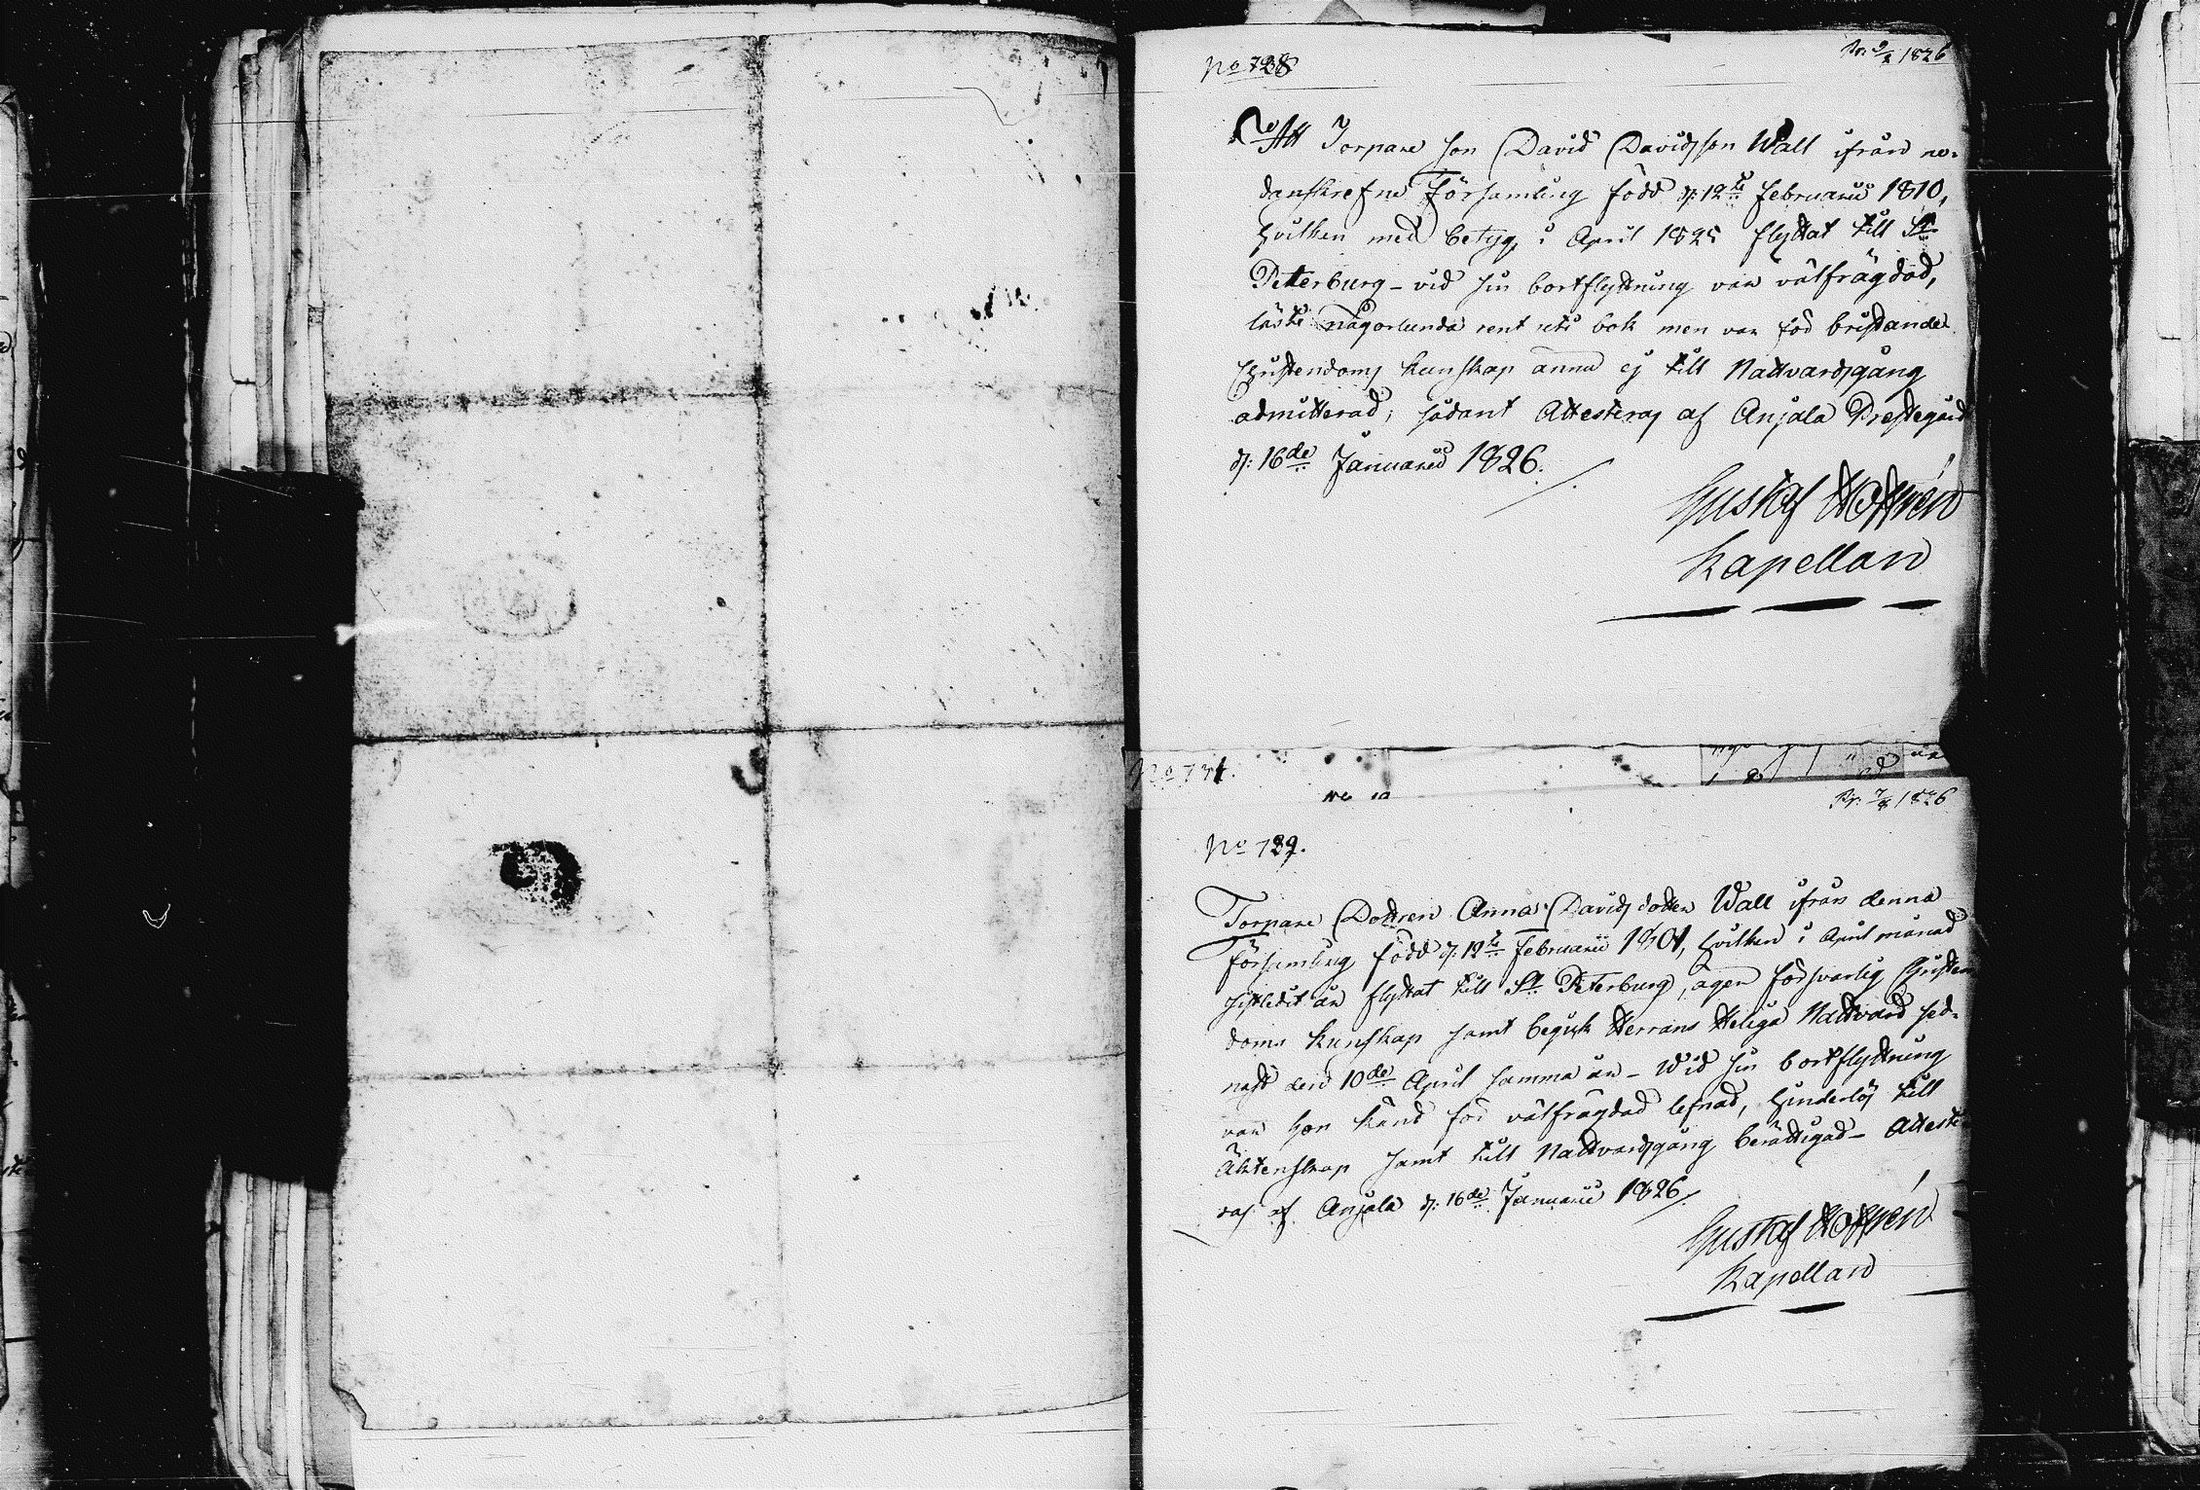 No 728
Pr. 9/2 1826
Att Torpare Son David Davidsson Wall ifrån ne-
danskrefne Församling född d: 12te Februarii 1810,
hvilken med betyg i April 1825 flyttat till St
Peterburg – vid sin bortflyttning var välfrägdad,
läste någorlunda rent uti bok men var för bristande
Christendoms kunskap ännu ej till Nattvardsgång
admitterad; sådant Attesteras af Anjala Prestegård
d: 16de Januarii 1826.
Gustaf
Kapellan
No 731.
Pr. 7/2 1826
No 729.
Torpare Dottren Anna Davidsdotter Wall ifrån denna
Församling född d: 12te Februarii 1801, hvilken i April månad
sistledit år flyttat till St Peterburg, äger försvarlig Christen
doms kunskap samt begick Herrans Heliga Nattvard sed-
nast den 10de April samma år – Wid sin bortflyttning
var hon känd för välfrägdad lefnad, hinderlös till
Äktenskap samt till Nattvardsgång berättigad – Atteste
ras af Anjala d: 16de Januarii 1826.
Gustaf
Kapellan